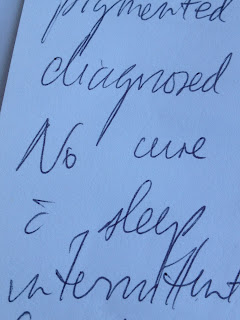 pigmented
diagnosed
No cure
c̄ sleep
intermittent